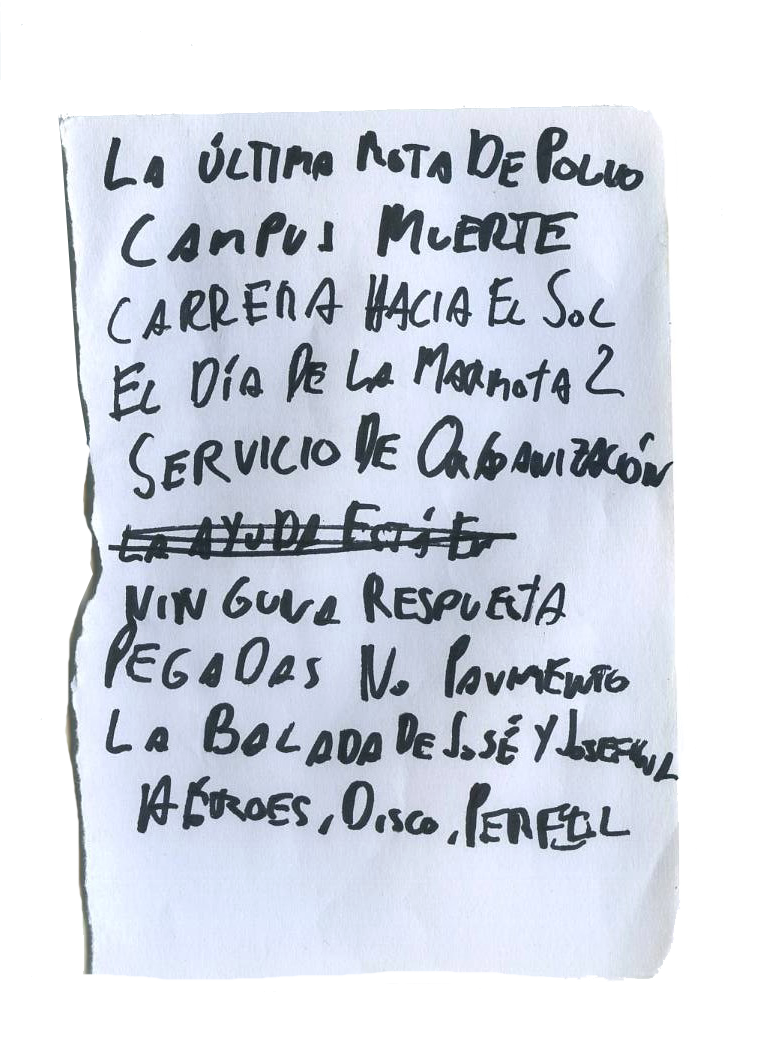 LA ÚLTIMA MOTA DE POLVO
CAMPUS MUERTE
CARRERA HACIA EL SOL
EL DÍA DE LA MARMOTA 2
SERVICIO DE ORGANIZACIÓN
LA AYUDA ESTÁ EN
NINGUNA RESPUESTA
PEGADAS NO PAVIMENTO
LA BALADA DE JOSÉ Y
HÉROES, DISCO, PERFIL